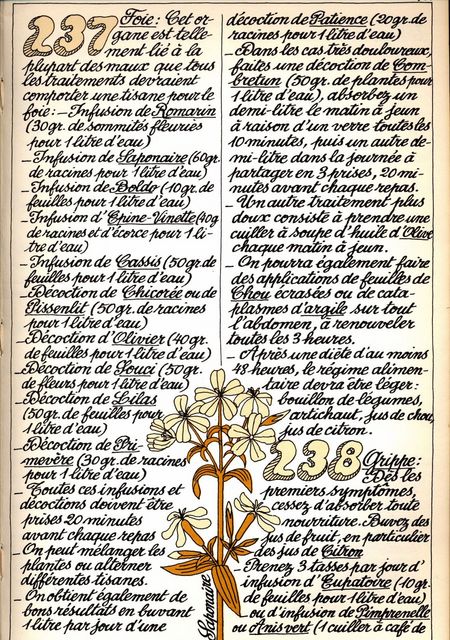 237 Foie: Cet or-
gane est telle-
ment lié à la
plupart des maux que tous
les traitements devraient
comporter une tisane pour le
foie: _Infusion de Romarin
(30gr. de sommités fleuries
pour 1 litre d'eau)
_Infusion de Saponaire (60gr.
de racines pour 1 litre d'eau)
_Infusion de Boldo (10gr. de
feuilles pour 1 litre d'eau)
_Infusion d'Epine-Vinette (40g
de racines et d'écorce pour 1 li-
tre d'eau)
_Infusion de Cassis (50gr. de
feuilles pour 1 litre d'eau)
_Décoction de Chicorée ou de
Pissenlit (50gr. de racines
pour 1 litre d'eau)
_Décoction d'Olivier (40gr.
de feuilles pour 1 litre d'eau)
_Décoction de Souci (50gr.
de fleurs pour 1 litre d'eau)
_Décoction de Lilas
(50gr. de feuilles pour
1 litre d'eau)
_Décoction de Pri-
mevère (30gr. de racines
pour 1 litre d'eau)
_Toutes ces infusions et
décoctions doivent être
prises 20 minutes
avant chaque repas
_On peut mélanger les
plantes ou alterner
différentes tisanes.
_On obtient également de
bons résultats en buvant
1 litre par jour d'une
décoction de Patience (20gr. de
racines pour 1 litre d'eau)
_Dans les cas très douloureux,
faites une décoction de Com-
bretum (50gr. de plantes pour
1 litre d'eau), absorbez un
demi-litre le matin à jeun
à raison d'un verre toutes les
10 minutes, puis un autre de-
mi-litre dans la journée à
partager en 3 prises, 20 mi-
nutes avant chaque repas.
_Un autre traitement plus
doux consiste à prendre une
cuiller à soupe d'huile d'Olive
chaque matin à jeun.
_On pourra également faire
des applications de feuilles de
Chou écrasées ou de cata-
plasmes d'argile sur tout
l'abdomen, à renouveler
toutes les 3 heures.
_Après une diète d'au moins
48 heures, le régime alimen-
taire devra être léger:
bouillon de légumes,
artichaut, jus de chou,
jus de citron.
238 Grippe:
Dès les
premiers symptômes,
cessez d'absorber toute
nourriture. Buvez des
jus de fruit, en particulier
des jus de Citron
_Prenez 3 tasses par jour d'
infusion d'Eupatoire (10gr.
de feuilles pour 1 litre d'eau)
_ou d'infusion de Pimprenelle
ou Anis vert (1 cuiller à café de
Saponaire